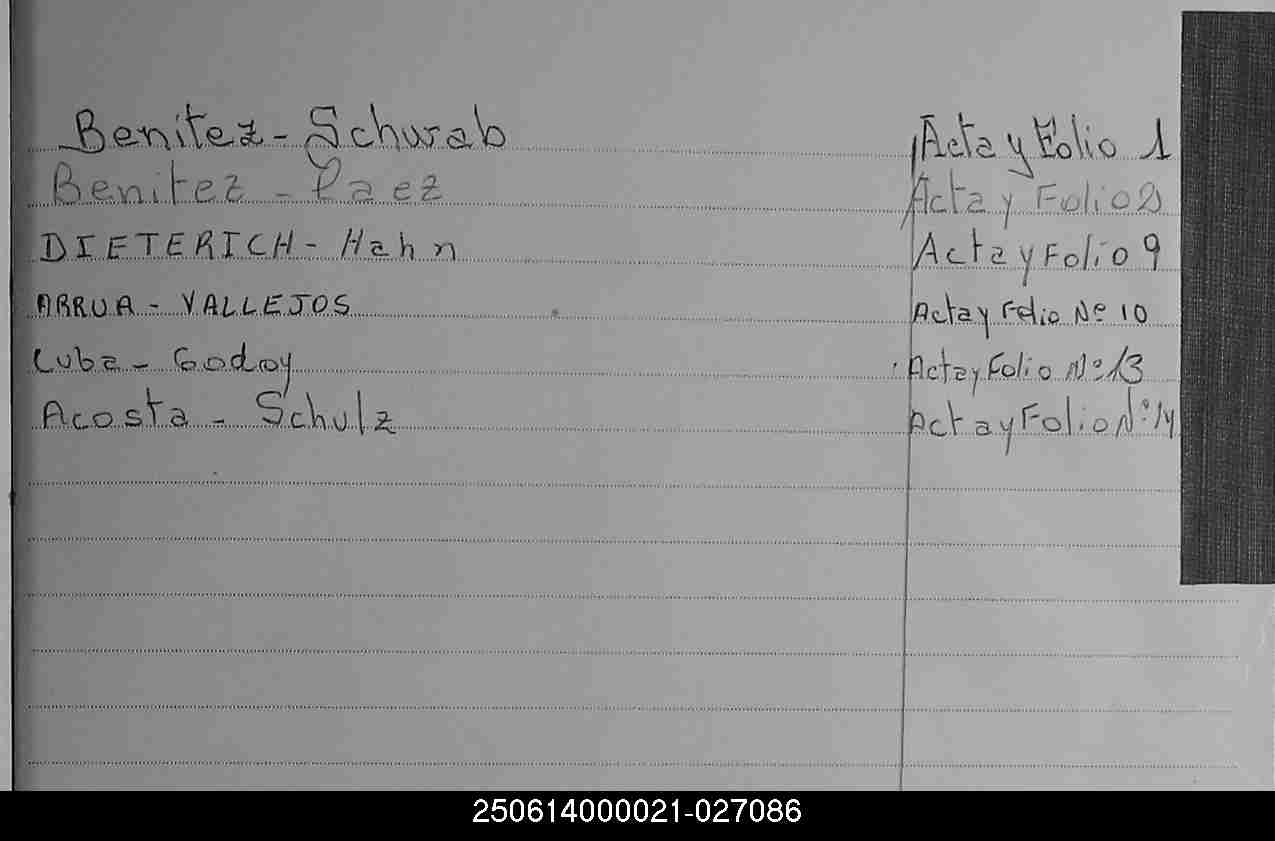 Benitez - Schwab Acta y Folio 1
Benitez - Paez Acta y Folio 2
DIETERICH - Hahn Acta y Folio 9
ARRUA - VALLEJOS Acta y Folio Nº 10
Cuba - Godoy Acta y Folio Nº 13
Acosta - Schulz Acta y Folio Nº 14
250614000021-027086